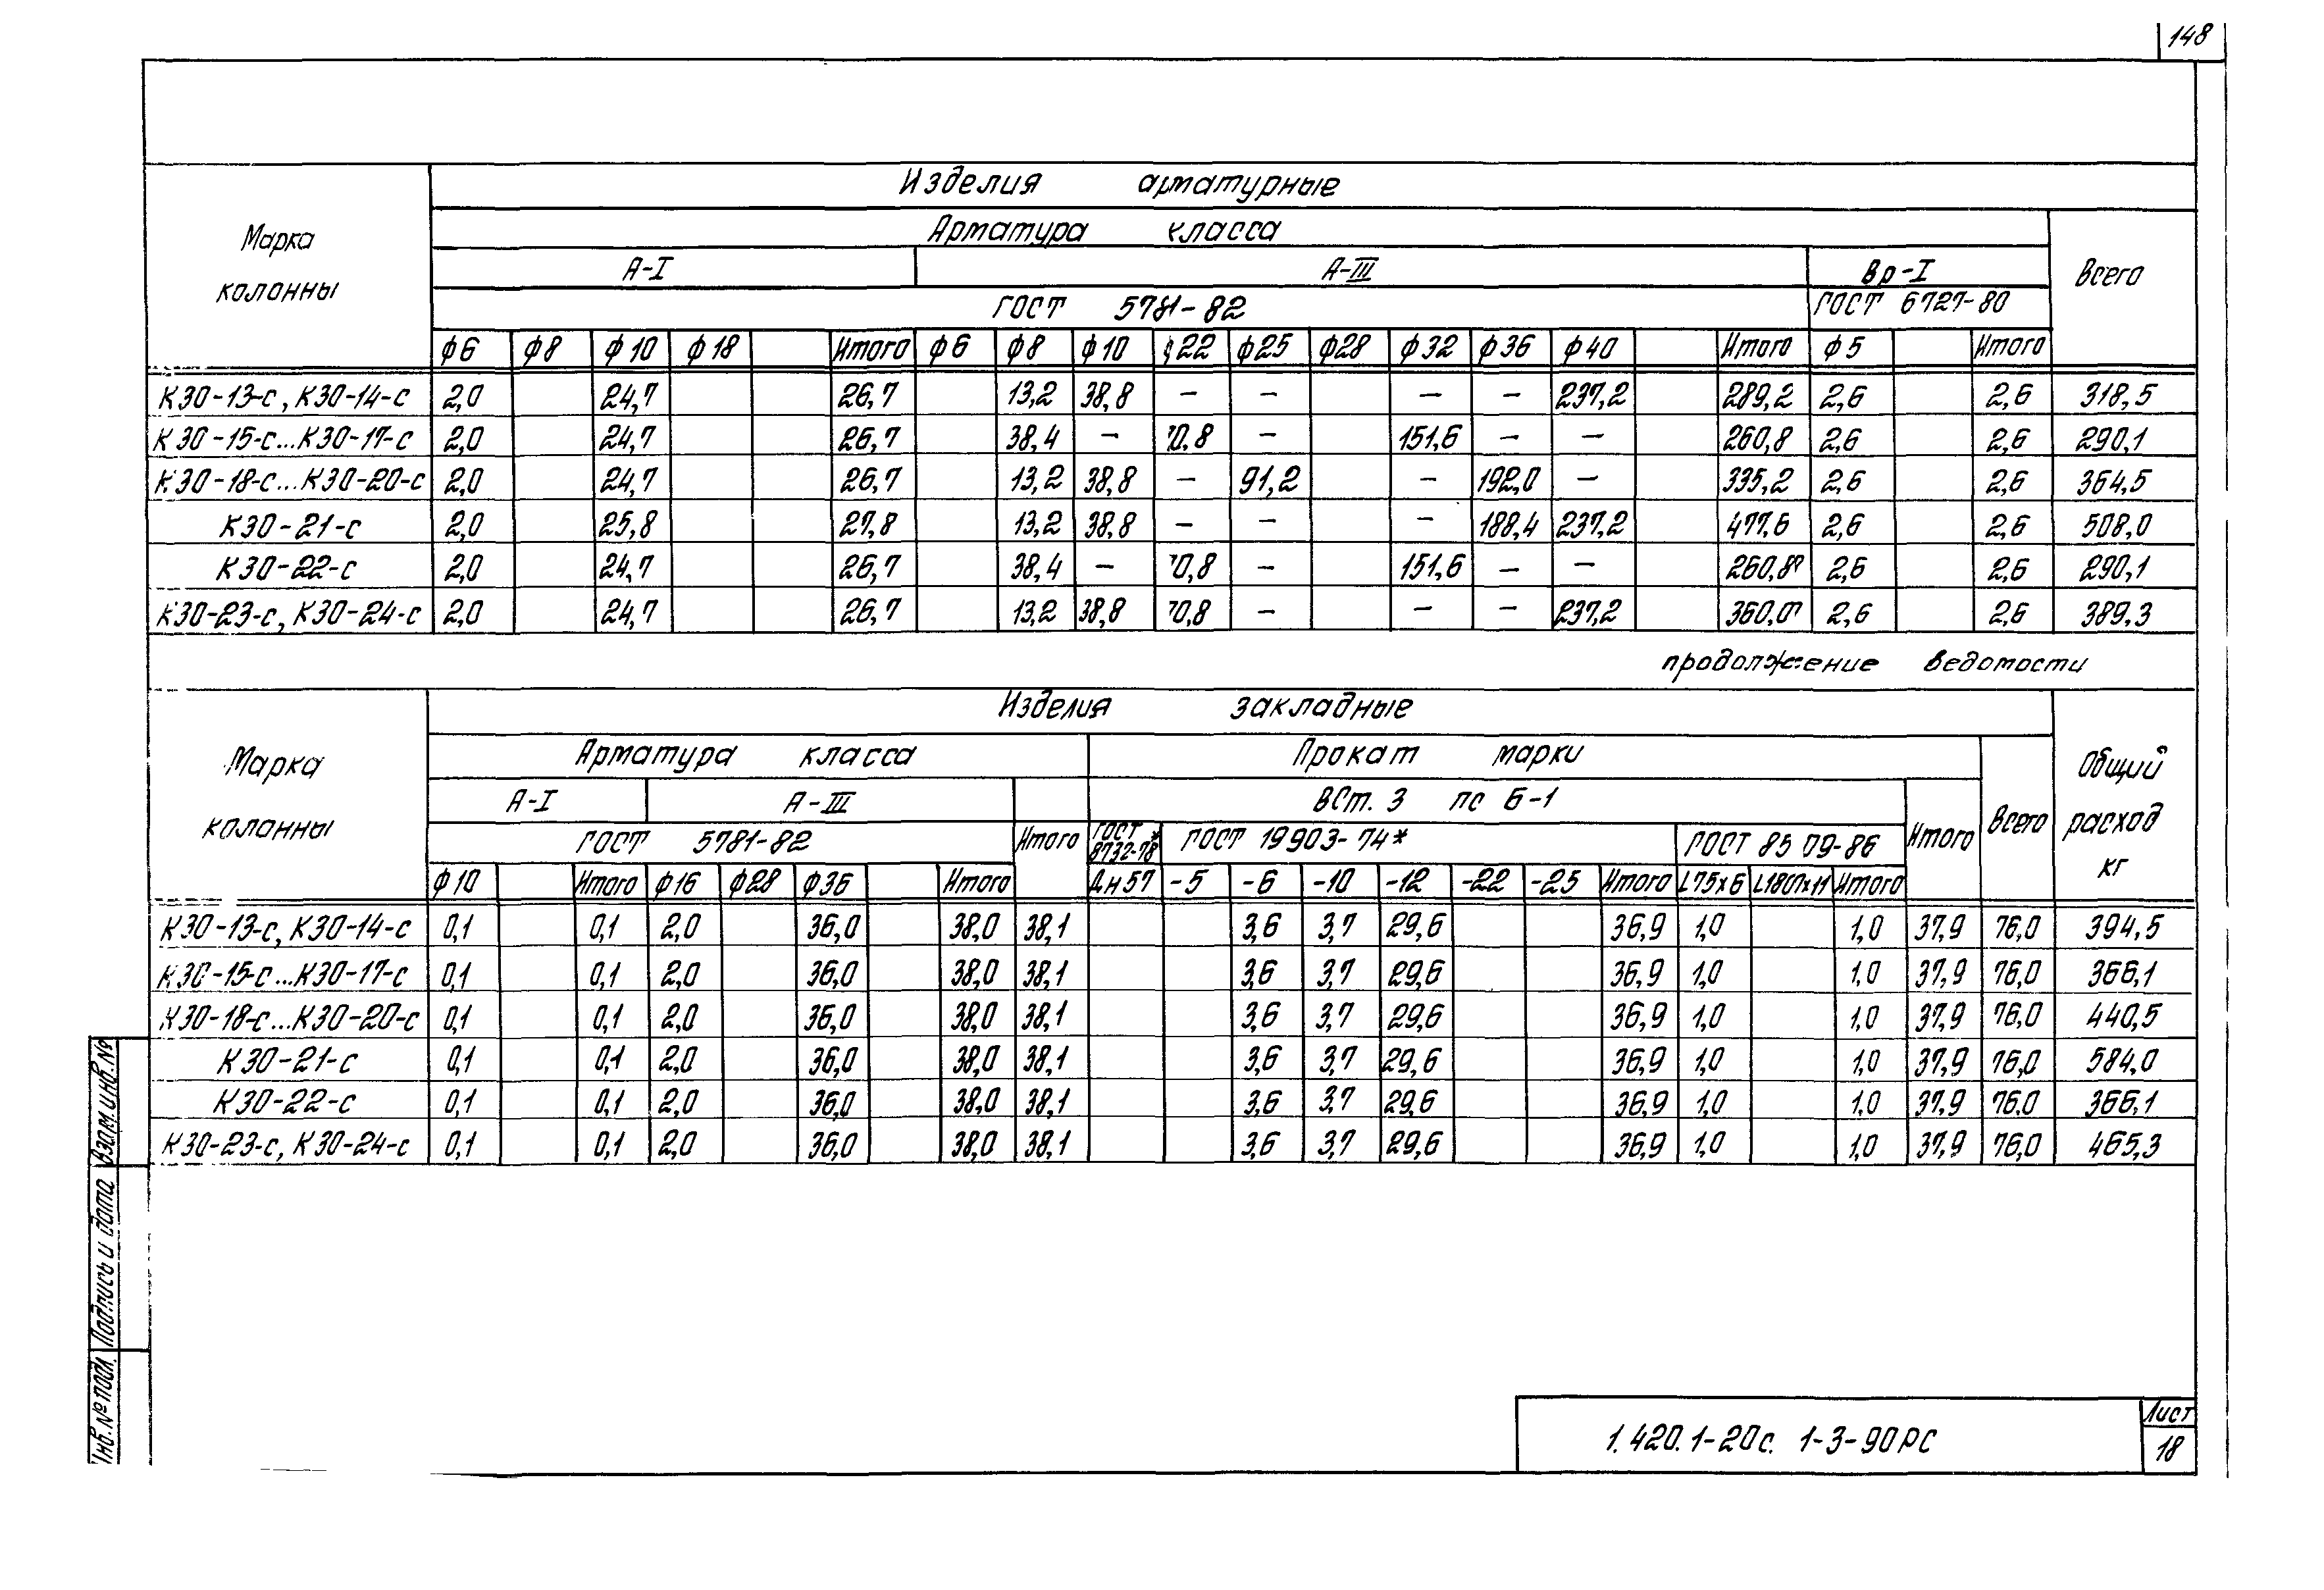 148
Изделия арматурные
Марка колонны
Арматура класса
Всего
А-I А-III Вр-I
ГОСТ 5781-82 ГОСТ 6727-80
ф6 ф8 ф10 ф18 Итого ф6 ф8 ф10 ф22 ф25 ф28 ф32 ф36 ф40 Итого ф5 Итого
К30-13-с, К30-14-с 2,0 24,7 26,7 13,2 38,8 – – – – 237,2 289,2 2,6 2,6 318,5
К30-15-с...К30-17-с 2,0 24,7 26,7 38,4 – 70,8 – 151,6 – – 260,8 2,6 2,6 290,1
К30-18-с...К30-20-с 2,0 24,7 26,7 13,2 38,8 – 91,2 – 192,0 – 335,2 2,6 2,6 364,5
К30-21-с 2,0 25,8 27,8 13,2 38,8 – – – 188,4 237,2 477,6 2,6 2,6 508,0
К30-22-с 2,0 24,7 26,7 38,4 – 70,8 – 151,6 – – 260,8 2,6 2,6 290,1
К30-23-с, К30-24-с 2,0 24,7 26,7 13,2 38,8 70,8 – – – 237,2 360,0 2,6 2,6 389,3
продолжение ведомости
Изделия закладные
Марка колонны
Арматура класса Прокат марки
Всего
Общий расход кг
А-I А-III ВСт. 3 пс 6-1
ГОСТ 5781-82 Итого ГОСТ 8732-78* ГОСТ 19903-74* ГОСТ 8509-86 Итого
ф10 Итого ф16 ф28 ф36 Итого Дн57 -5 -6 -10 -12 -22 -25 Итого L75х6 L180х11 Итого
К30-13-с, К30-14-с 0,1 0,1 2,0 36,0 38,0 38,1 3,6 3,7 29,6 36,9 1,0 1,0 37,9 76,0 394,5
К30-15-с...К30-17-с 0,1 0,1 2,0 36,0 38,0 38,1 3,6 3,7 29,6 36,9 1,0 1,0 37,9 76,0 366,1
К30-18-с...К30-20-с 0,1 0,1 2,0 36,0 38,0 38,1 3,6 3,7 29,6 36,9 1,0 1,0 37,9 76,0 440,5
К30-21-с 0,1 0,1 2,0 36,0 38,0 38,1 3,6 3,7 29,6 36,9 1,0 1,0 37,9 76,0 584,0
К30-22-с 0,1 0,1 2,0 36,0 38,0 38,1 3,6 3,7 29,6 36,9 1,0 1,0 37,9 76,0 366,1
К30-23-с, К30-24-с 0,1 0,1 2,0 36,0 38,0 38,1 3,6 3,7 29,6 36,9 1,0 1,0 37,9 76,0 465,3
Инв.№ подл. Подпись и дата Взам.инв.№
1.420.1-20с. 1-3-90РС
Лист
18